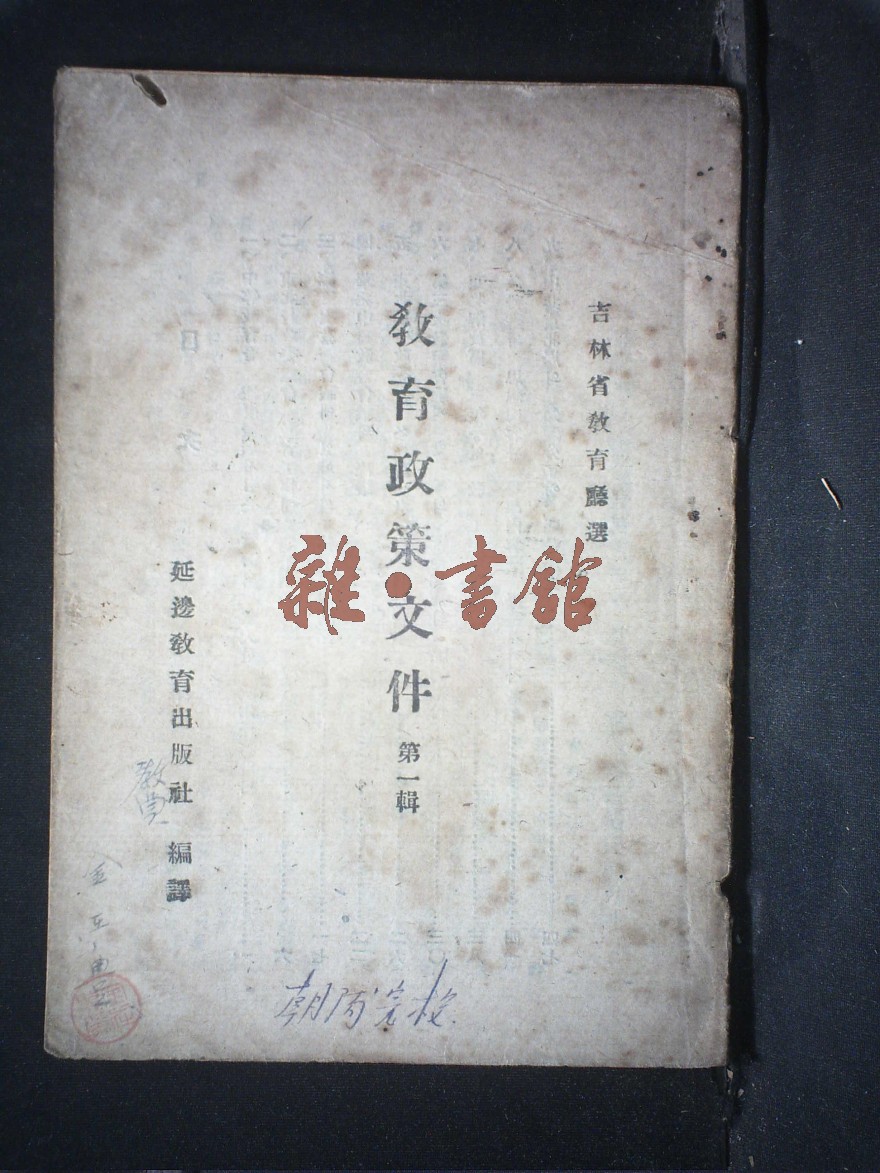 吉林省教育廳選
教育政策文件 第一輯
延邊教育出版社 編譯
雜·書館
教員
朝陽完校